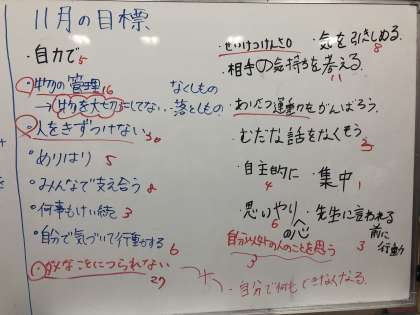 11月の目標
・自力で 5
・物の管理 16
→物を大切にしてない
なくしもの
落としもの
・人をきずつけない 30
・めりはり 5
・みんなで支え合う 8
・何事もけい続 3
・自分で気づいて行動する 6
・なことにつられない 27
・せいけつけんさ0
・気を引きしめる 8
・相手の気持ちを考える 11
・あいさつ運動をがんばろう
・むだな話をなくそう 3
・自主的に 4
・集中 1
・思いやりの心 6
・先生に言われる前に行動 3
自分以外の人のことを思う 3
・自分で何もできなくなる